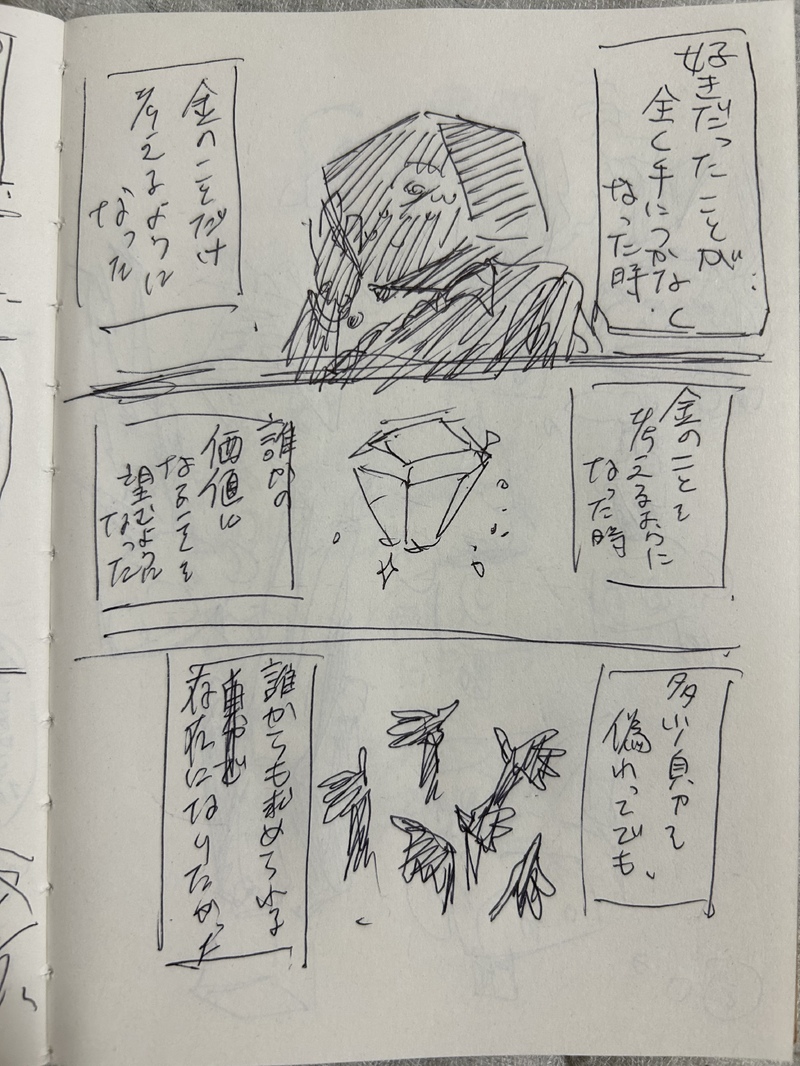 好きだったことが
全く手につかなく
なった時
金のことだけ
考えるように
なった
金のことを
考えるように
なった時
誰かの
価値に
なることを
望むように
なった
多少自分を
偽ってでも、
誰かでも求めてくれる
存在になりたかった